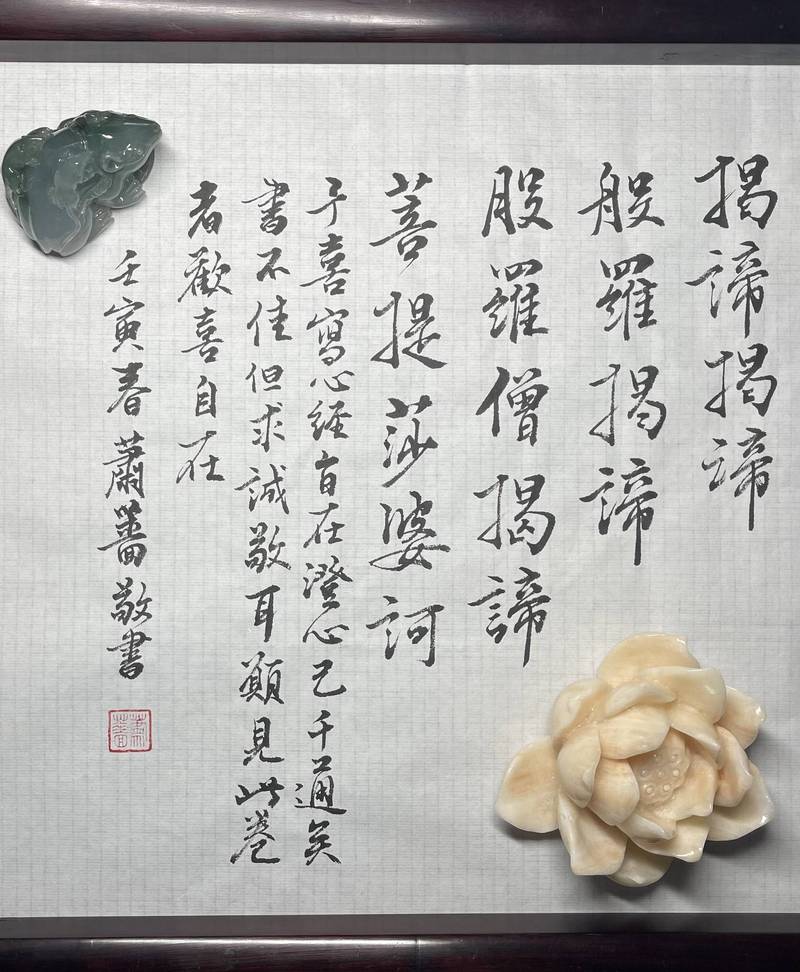 揭諦揭諦
般羅揭諦
般羅僧揭諦
菩提莎婆訶
予喜寫心經旨在澄心已千通矣
書不佳但求誠敬耳願見此卷
者歡喜自在
壬寅春蕭薔敬書
蕭薔